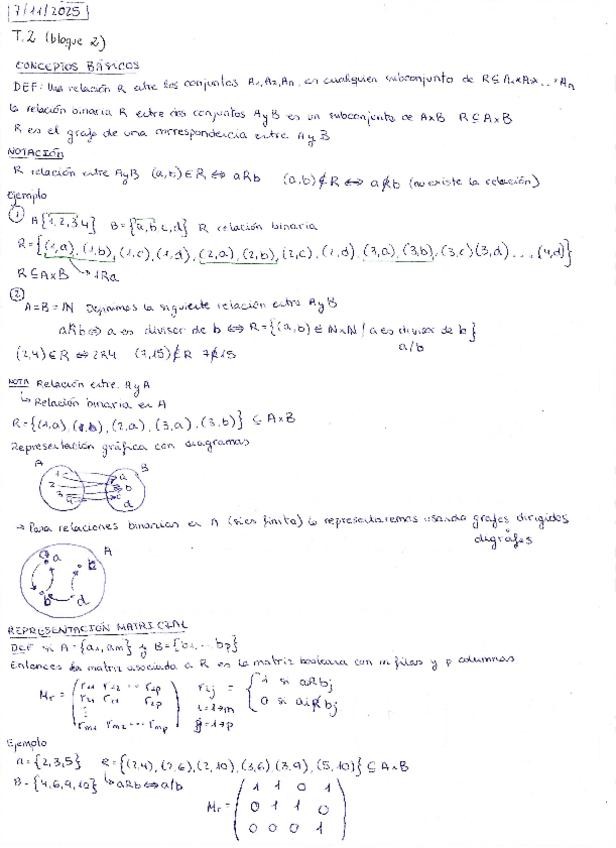 7/11/2025
T.2 (bloque 2)
CONCEPTOS BÁSICOS
DEF: Una relación R entre los conjuntos A₁, A₂, Aₙ, es cualquier subconjunto de R ⊆ A₁×A₂×...×Aₙ
la relación binaria R entre dos conjuntos A y B es un subconjunto de A×B R ⊆ A×B
R es el grafo de una correspondencia entre A y B
NOTACIÓN
R relación entre A y B (a,b) ∈ R ⇔ aRb (a,b) ∉ R ⇔ a R̸ b (no existe la relación)
Ejemplo
① A{1,2,3,4} B={a,b,c,d} R relación binaria
R={(1,a), (1,b), (1,c), (1,d), (2,a), (2,b), (2,c), (2,d), (3,a), (3,b), (3,c) (3,d) ... (4,d)}
R ⊆ A×B → 1Ra
②
A=B=ℕ Definimos la siguiente relación entre A y B
aRb ⇔ a es divisor de b ⇔ R={(a,b) ∈ ℕ×ℕ / a es divisor de b}
a/b
(2,4) ∈ R ⇔ 2R4 (7,15) ∉ R 7 R̸ 15
NOTA Relación entre A y A
↳ Relación binaria en A
R={(1,a), (1,b), (2,a), (3,a), (3,b)} ⊆ A×B
Representación gráfica con diagramas
A B
1 a
2 b
3 c
4 d
→ Para relaciones binarias en A (si es finito) lo representaremos usando grafos dirigidos
digrafos
A
a
b d
REPRESENTACIÓN MATRICIAL
DEF si A={a₁,aₘ} y B={b₁,...bₚ}
Entonces la matriz asociada a R es la matriz booleana con m filas y p columnas
Mr = ( r₁₁ r₁₂ ... r₁ₚ rij = { 1 si aRbj
r₂₁ r₂₂ r₂ₚ i=1→m 0 si ai R̸ bj
⋮ j=1→p
rₘ₁ rₘ₂ ... rₘₚ )
Ejemplo
A={2,3,5} R={(2,4), (2,6), (2,10), (3,6), (3,9), (5,10)} ⊆ A×B
B={4,6,9,10} ↳ aRb ⇔ a/b
Mr = ( 1 1 0 1
0 1 1 0
0 0 0 1 )